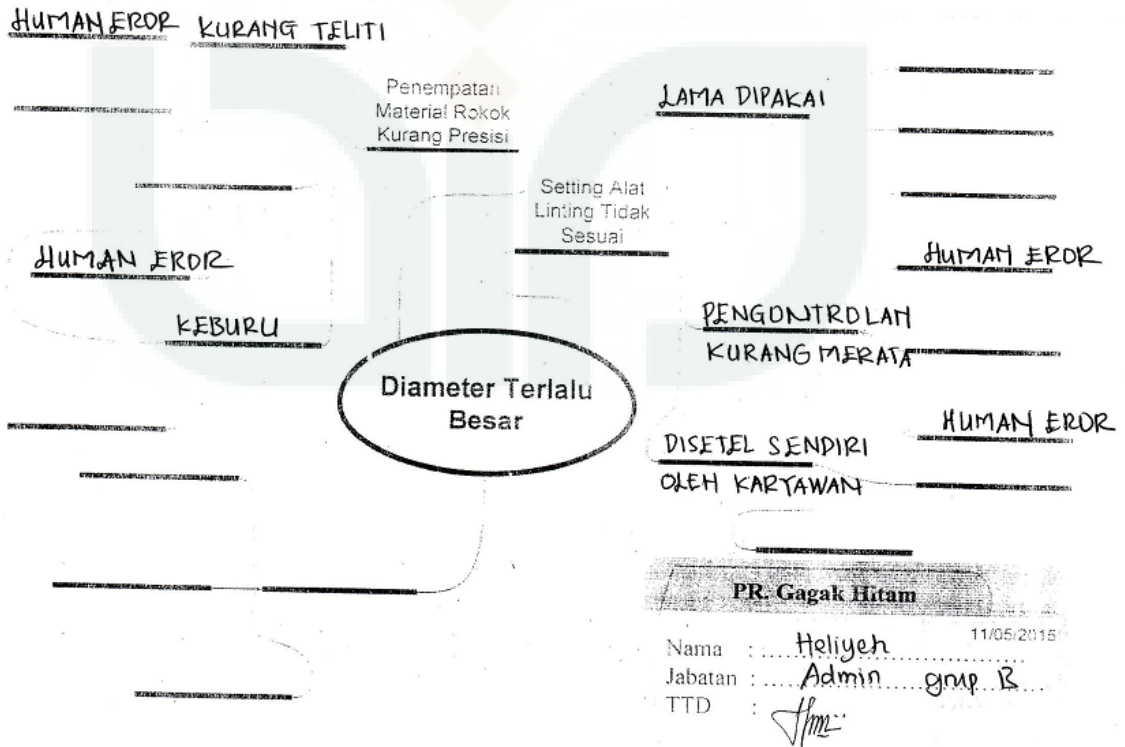 HUMAN EROR
KURANG TELITI
Penempatan
Material Rokok
Kurang Presisi
LAMA DIPAKAI
Setting Alat
Linting Tidak
Sesuai
HUMAN EROR
HUMAN EROR
KEBURU
PENGONTROLAN
KURANG MERATA
Diameter Terlalu
Besar
HUMAN EROR
DISETEL SENDIRI
OLEH KARYAWAN
PR. Gagak Hitam
11/05/2015
Nama : Heliyeh
Jabatan : Admin grup B
TTD :